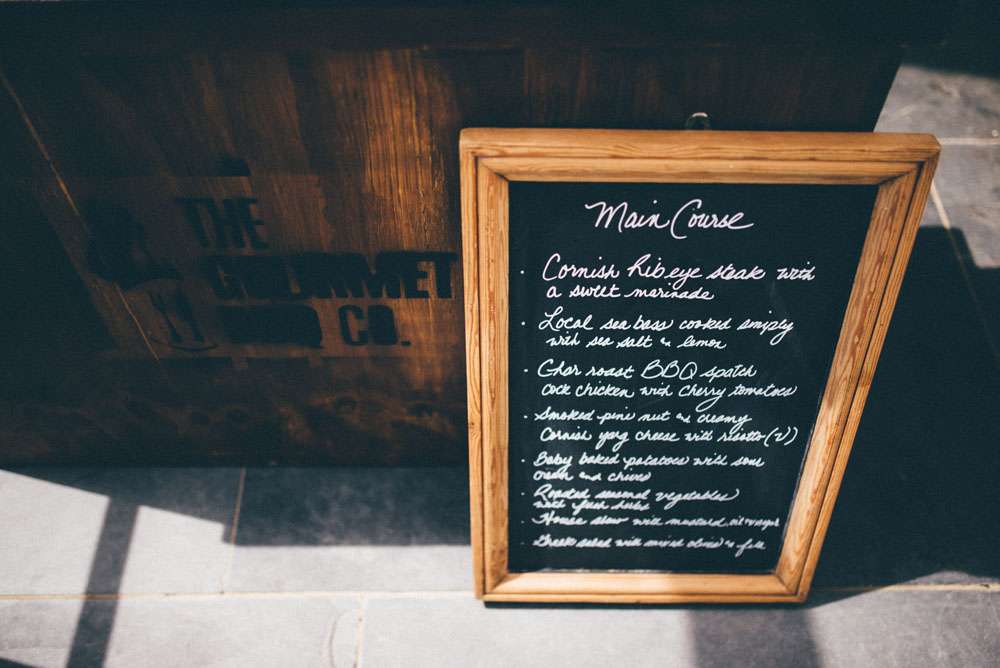 THE
GOURMET
CO.
Main Course
· Cornish rib eye steak with
a sweet marinade
· Local sea bass cooked smiply
with sea salt & lemon
· Char roast BBQ spatch
cock chicken with cherry tomatoes
· Smoked pine nut & creamy
Cornish yarg cheese with risotto (V)
· Baby baked potatoes with sour
cream and chives
· Roasted seasonal vegetables
with fresh herbs
· House slaw with mustard
· Greek salad with mixed olives & feta